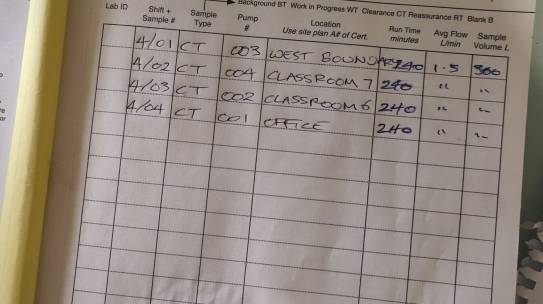 Background BT Work in Progress WT Clearance CT Reassurance RT Blank B
Lab ID Shift + Sample # Sample Type Pump # Location Use site plan A# of Cert. Run Time minutes Avg Flow L/min Sample Volume L
4/01 CT 003 WEST BOUNDARY 240 1.5 360
4/02 CT 004 CLASSROOM 7 240 " "
4/03 CT 002 CLASSROOM 6 240 " "
4/04 CT 001 OFFICE 240 " "